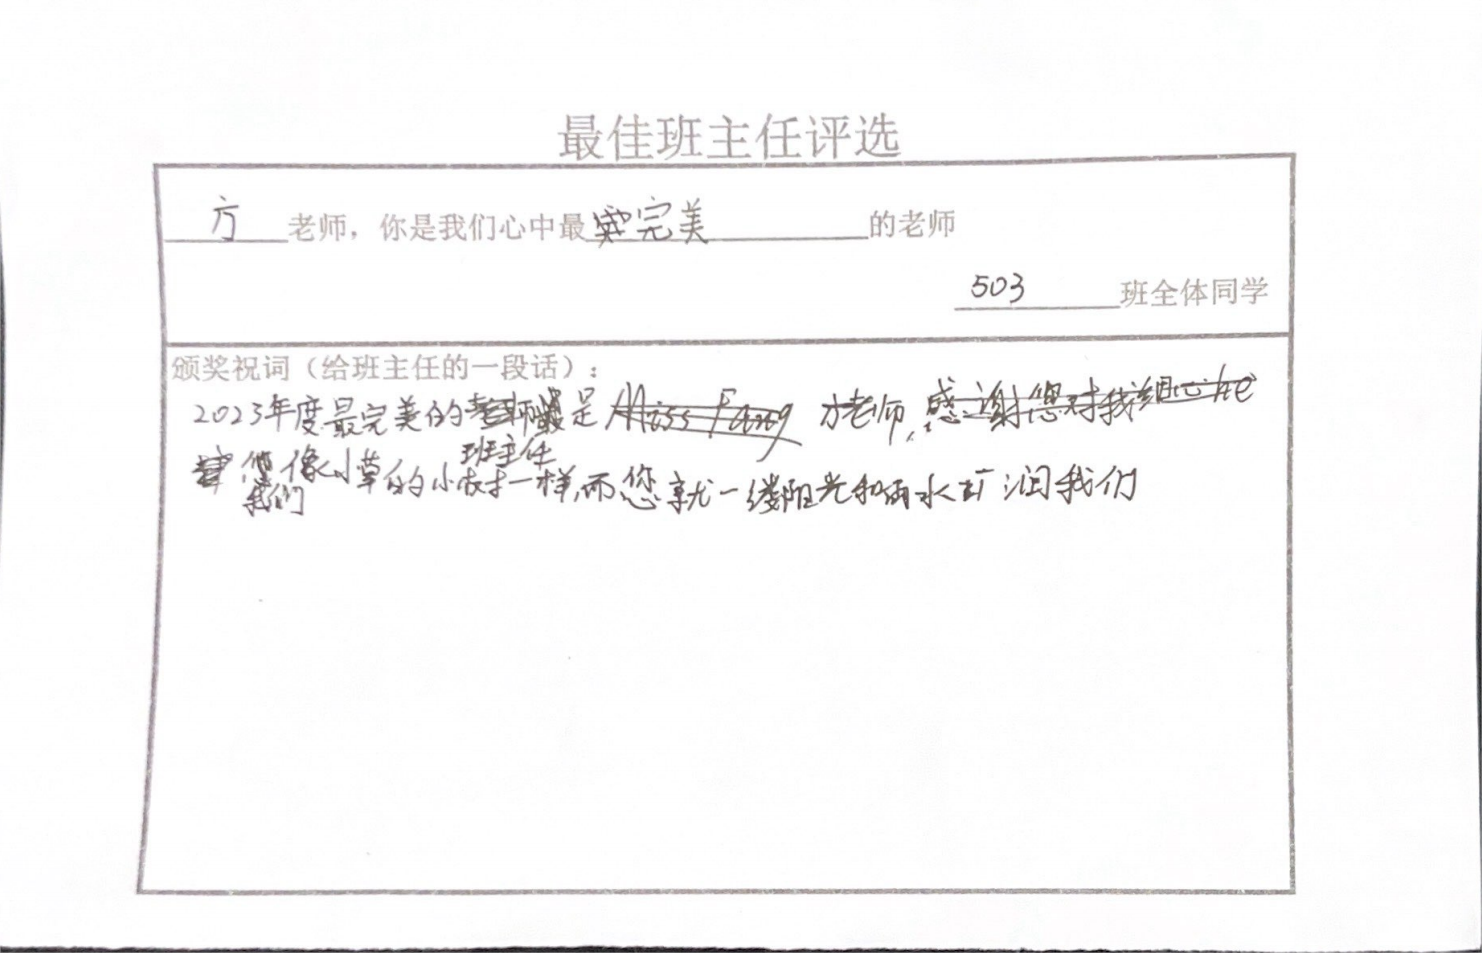 最佳班主任评选
方 老师，你是我们心中最 完美 的老师
503 班全体同学
颁奖祝词（给班主任的一段话）：
2023年度最完美的班主任是 方老师，
我们像小草的小树一样，而您就一缕阳光和雨水 润我们